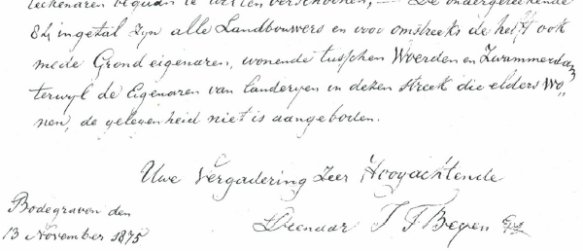 teekenaren wel te verschoonen, De ondergeteekende
84 in getal zyn alle Landbouwers en voor omstreeks de helft ook
mede Grond eigenaren, wonende tusschen Woerden en Zwammerdam
terwyl de Eigenaren van landeryen in deken streek die elders wo„
nen, de gelegenheid niet is aangeboden.
Uwe Vergadering Zeer Hoogachtende
Bodegraven den
Dienaar J F Beyen
13 November 1875